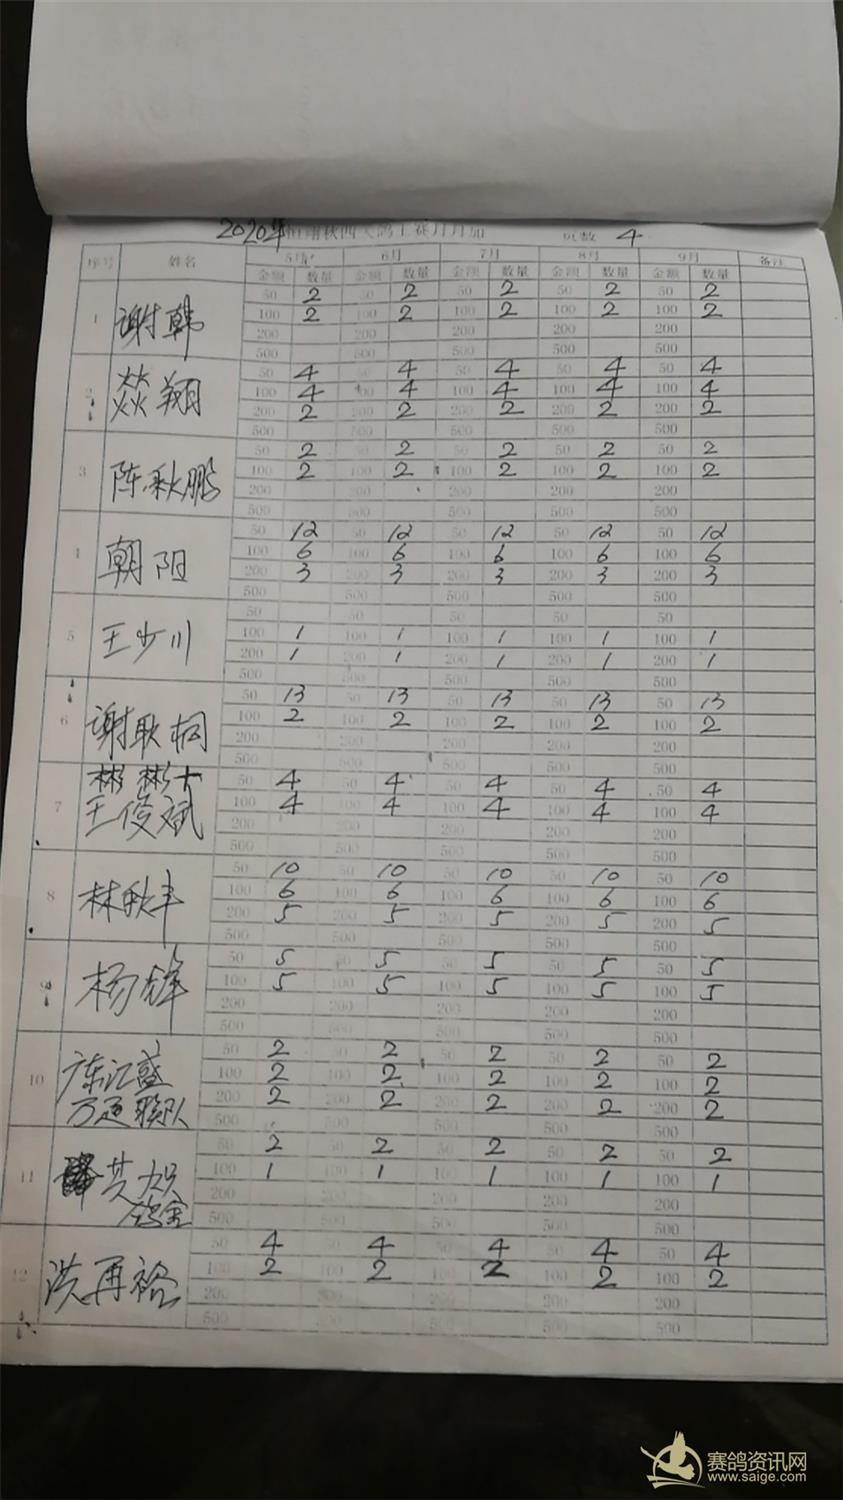 2020年恒翔秋四大鸽王赛月月加 页数 4
序号 姓名 5月 6月 7月 8月 9月 备注
金额 数量 金额 数量 金额 数量 金额 数量 金额 数量
1 谢韩
50 2 50 2 50 2 50 2 50 2
100 2 100 2 100 2 100 2 100 2
200 200 200 200 200
500 500 500 500 500
2 燚翔
50 4 50 4 50 4 50 4 50 4
100 4 100 4 100 4 100 4 100 4
200 2 200 2 200 2 200 2 200 2
500 500 500 500 500
3 陈秋鹏
50 2 50 2 50 2 50 2 50 2
100 2 100 2 100 2 100 2 100 2
200 200 200 200 200
500 500 500 500 500
4 朝阳
50 12 50 12 50 12 50 12 50 12
100 6 100 6 100 6 100 6 100 6
200 3 200 3 200 3 200 3 200 3
500 500 500 500 500
5 王少川
50 50 50 50 50
100 1 100 1 100 1 100 1 100 1
200 1 200 1 200 1 200 1 200 1
500 500 500 500 500
6 谢耿桐
50 13 50 13 50 13 50 13 50 13
100 2 100 2 100 2 100 2 100 2
200 200 200 200 200
500 500 500 500 500
7 彬彬十
王俊斌
50 4 50 4 50 4 50 4 50 4
100 4 100 4 100 4 100 4 100 4
200 200 200 200 200
500 500 500 500 500
8 林秋丰
50 10 50 10 50 10 50 10 50 10
100 6 100 6 100 6 100 6 100 6
200 5 200 5 200 5 200 5 200 5
500 500 500 500 500
9 杨锋
50 5 50 5 50 5 50 5 50 5
100 5 100 5 100 5 100 5 100 5
200 200 200 200 200
500 500 500 500 500
10 广东汇盛
万通联队
50 2 50 2 50 2 50 2 50 2
100 2 100 2 100 2 100 2 100 2
200 2 200 2 200 2 200 2 200 2
500 500 500 500 500
11 鸽舍
50 2 50 2 50 2 50 2 50 2
100 1 100 1 100 1 100 1 100 1
200 200 200 200 200
500 500 500 500 500
12 洪再裕
50 4 50 4 50 4 50 4 50 4
100 2 100 2 100 2 100 2 100 2
200 200 200 200 200
500 500 500 500 500
赛鸽资讯网
www.saige.com